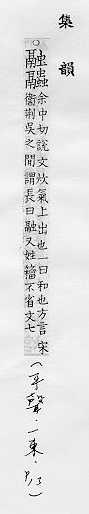 集韻
○融𧖓余中切說文炊氣上出也一曰和也方言宋
衛荆吳之閒謂長曰融又姓籀不省文七
(平聲．一東．P13)